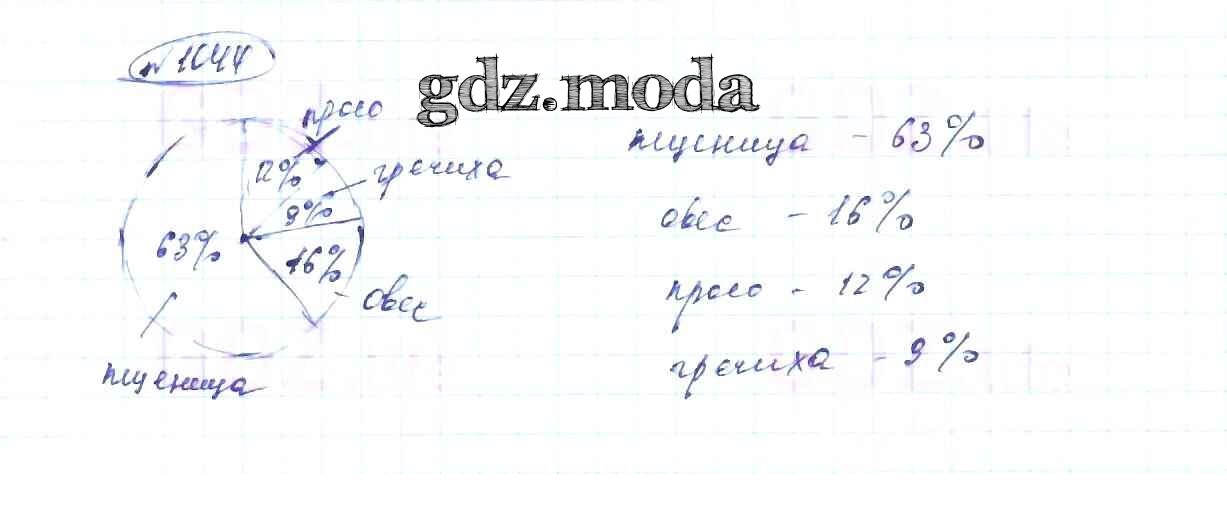 № 1044
gdz.moda
просо
пшеница - 63%
12%
гречиха
9%
овес - 16%
63%
16%
просо - 12%
овес
гречиха - 9%
пшеница